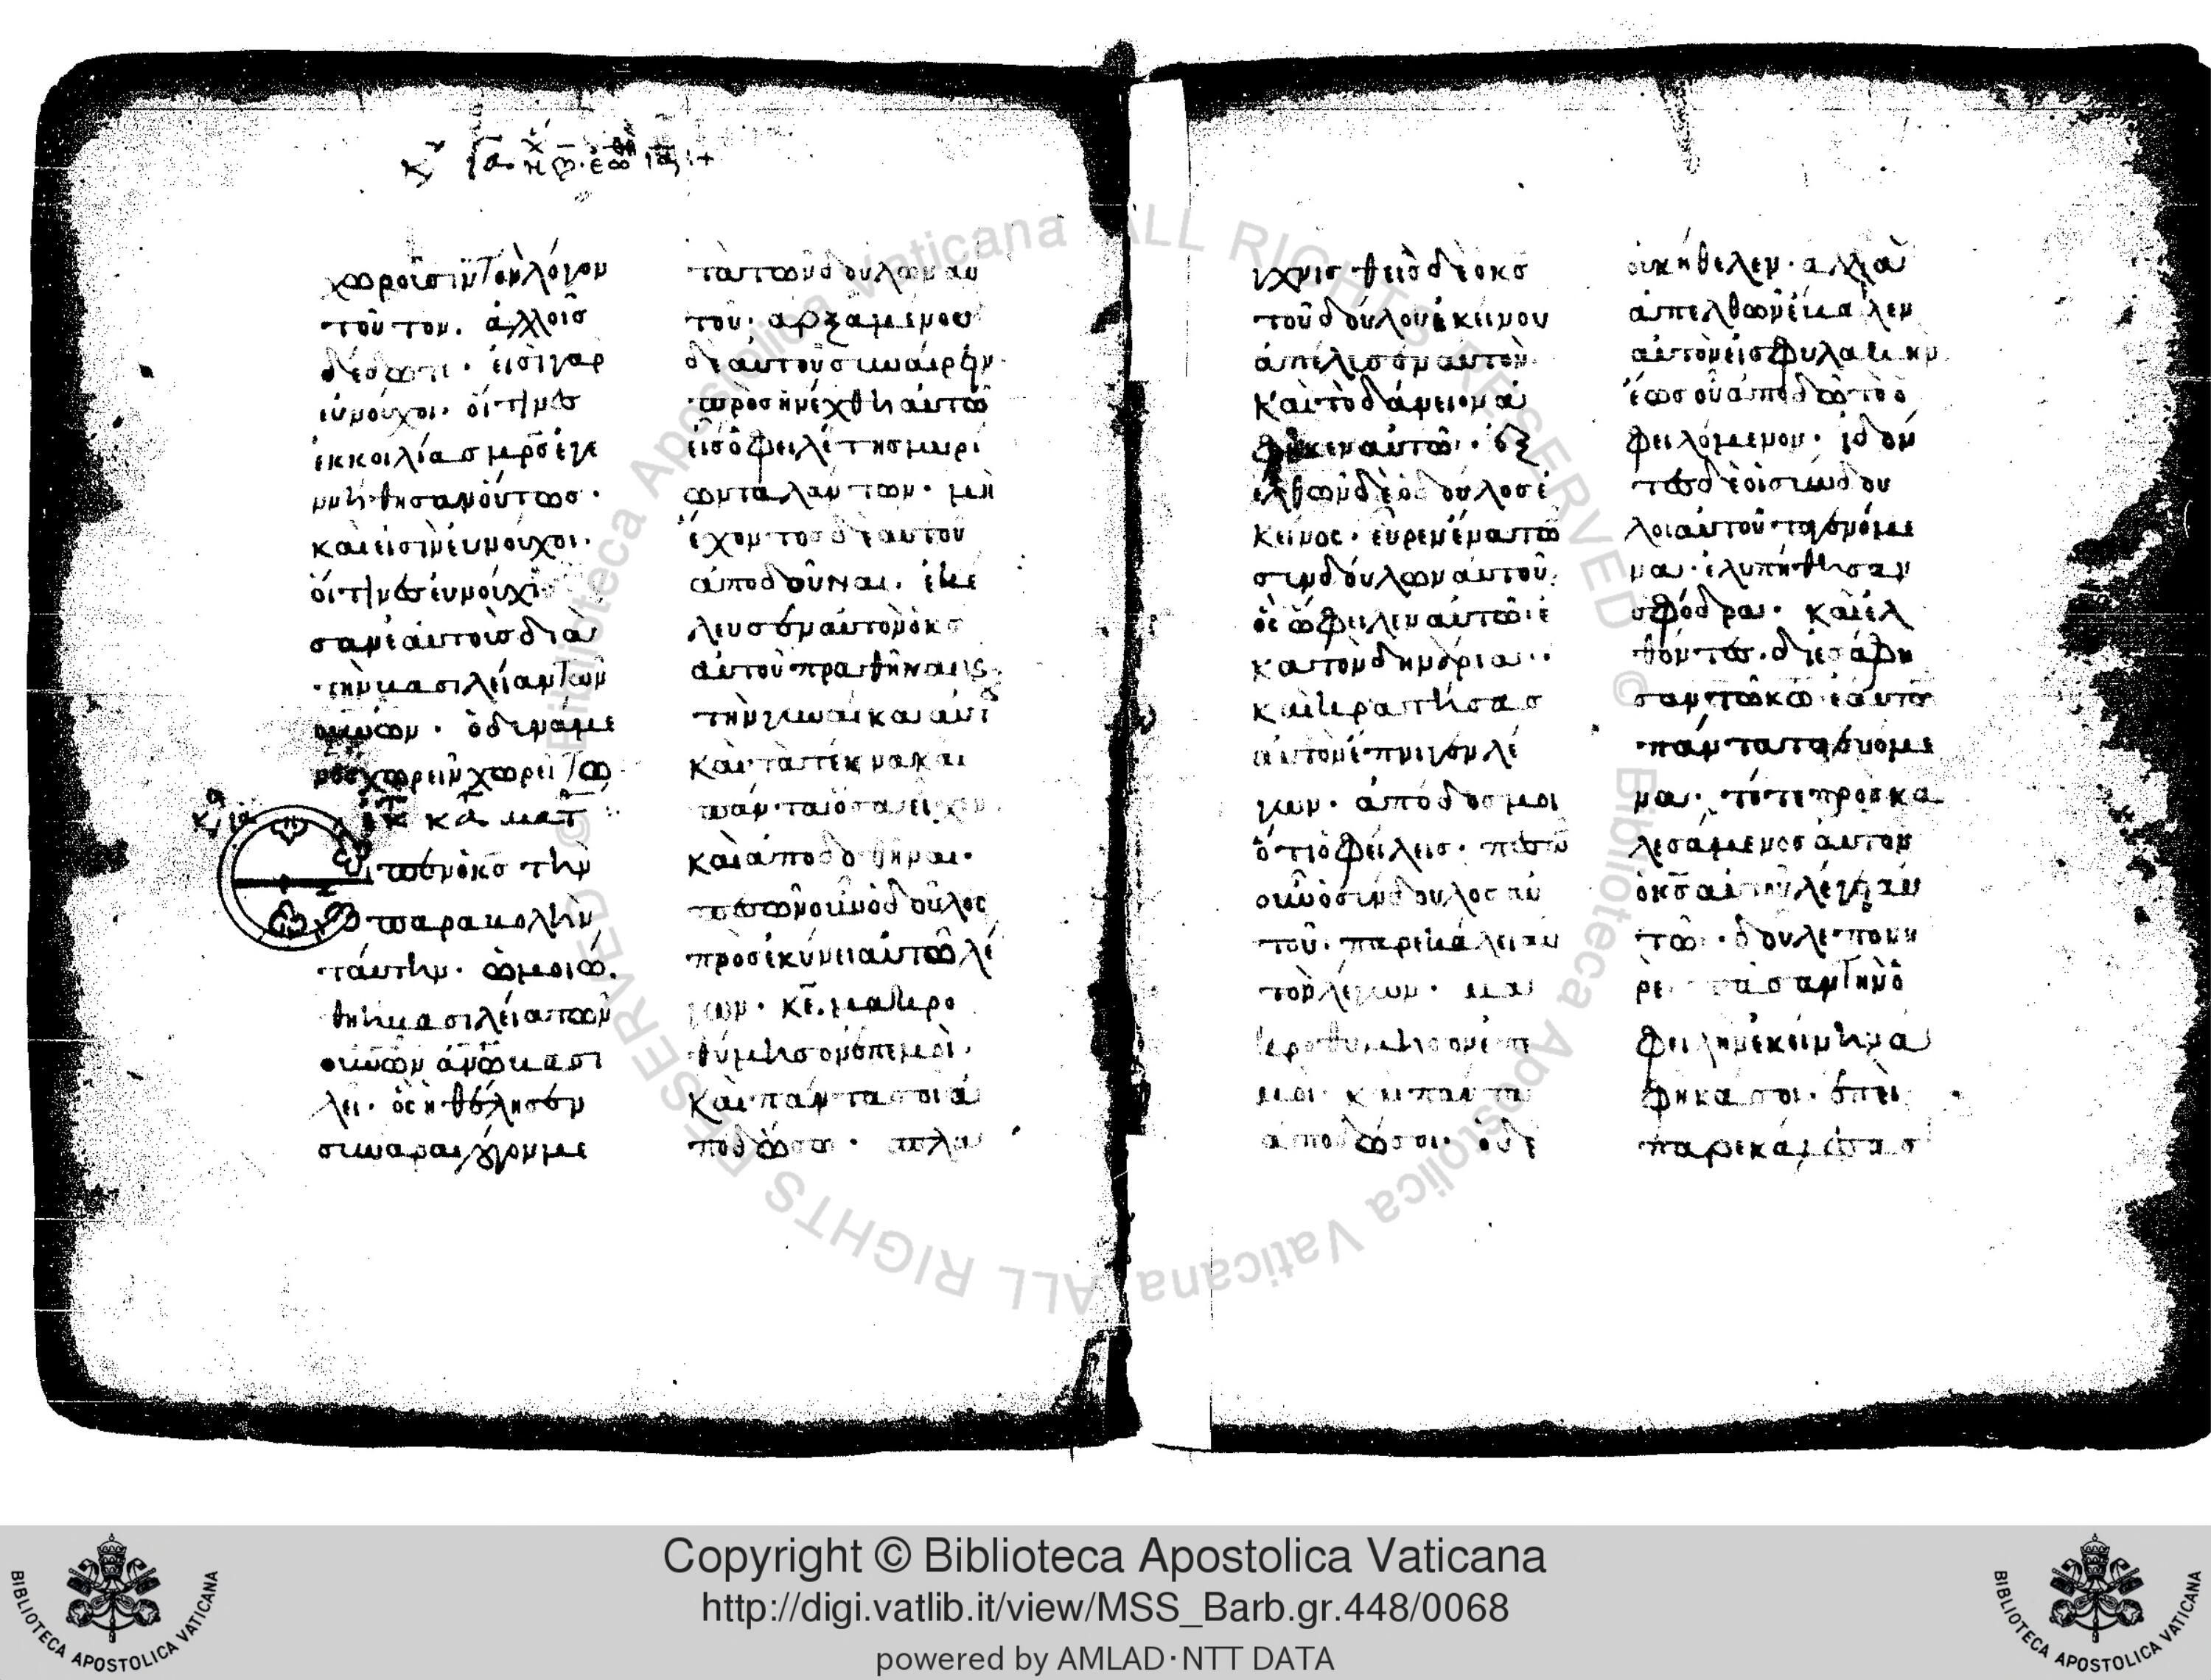 χωροῦσιν τὸν λόγον
τοῦτον. ἀλλ' οἷς
δέδοται· εἰσὶ γὰρ
εὐνοῦχοι· οἵτινες
ἐκ κοιλίας μρ̅ς ἐγε
ννήθησαν οὕτως·
καὶ εἰσὶν εὐνοῦχοι·
οἵτινες εὐνούχι
σαν ἑαυτοὺς διὰ
τὴν βασιλείαν τῶν
οὐν̅ῶν· ὁ δυνάμε
νος χωρεῖν χωρείτω
ἐκ κατ ματ
Εἶπεν ὁ κς̅ τὴν
παραβολὴν
ταύτην· ὡμοιώ
θη ἡ βασιλεία τῶν
οὐν̅ῶν ἀν̅ω̅ βασι
λεῖ· ὃς ἠθέλησεν
συνᾶραι λόγον με
τὰ τῶν δούλων αὐ
τοῦ· ἀρξαμένου
δὲ αὐτοῦ συναίρειν·
προσηνέχθη αὐτῷ
εἷς ὀφειλέτης μυρί
ων ταλάντων· μὴ
ἔχοντος δὲ αὐτοῦ
ἀποδοῦναι. ἐκέ
λευσεν αὐτὸν ὁ κς̅
αὐτοῦ πραθῆναι
τὴν γυναῖκα αὐτοῦ
καὶ τὰ τέκνα καὶ
πάντα ὅσα εἶχεν
καὶ ἀποδοθῆναι·
πεσὼν οὖν ὁ δοῦλος
προσεκύνει αὐτῷ λέ
γων· κε̅. μακρο
θύμησον ἐπ' ἐμοὶ·
καὶ πάντα σοι ἀ
ποδώσω· σπλα
γχνισθεὶς δὲ ὁ κς̅
τοῦ δούλου ἐκείνου
ἀπέλυσεν αὐτὸν·
καὶ τὸ δάνειον ἀ
φῆκεν αὐτῷ· ἐξ
ελθὼν δὲ ὁ δοῦλος ἐ
κεῖνος· εὗρεν ἕνα τῶ
συνδούλων αὐτοῦ·
ὃς ὤφειλεν αὐτῷ ἑ
κατὸν δηνάρια·
καὶ κρατήσας
αὐτὸν ἔπνιγεν λέ
γων· ἀπόδος μοι
ὅ τι ὀφείλεις· πεσὼ
οὖν ὁ σύνδουλος αὐ
τοῦ· παρεκάλει αὐ
τὸν λέγων· μα
κροθύμησον ἐπ'
ἐμοὶ· καὶ πάντα
ἀποδώσω σοι· ὁ δὲ
οὐκ ἤθελεν· ἀλλὰ
ἀπελθὼν ἔβαλεν
αὐτὸν εἰς φυλακὴν
ἕως οὗ ἀποδῷ τὸ ὀ
φειλόμενον· ἰδόν
τες δὲ οἱ σύνδου
λοι αὐτοῦ τὰ γενόμε
να· ἐλυπήθησαν
σφόδρα· καὶ ἐλ
θόντες. διεσάφη
σαν τῷ κω̅ ἑαυτῶν
πάντα τὰ γενόμε
να· τότε προσκα
λεσάμενος αὐτὸν
ὁ κς̅ αὐτοῦ λέγει αὐ
τῷ· δοῦλε πονη
ρὲ πᾶσαν τὴν ὀ
φειλὴν ἐκείνην ἀ
φῆκά σοι· ἐπεὶ
παρεκάλεσας
Copyright © Biblioteca Apostolica Vaticana
http://digi.vatlib.it/view/MSS_Barb.gr.448/0068
powered by AMLAD·NTT DATA
BIBLIOTECA APOSTOLICA VATICANA
BIBLIOTECA APOSTOLICA VATICANA